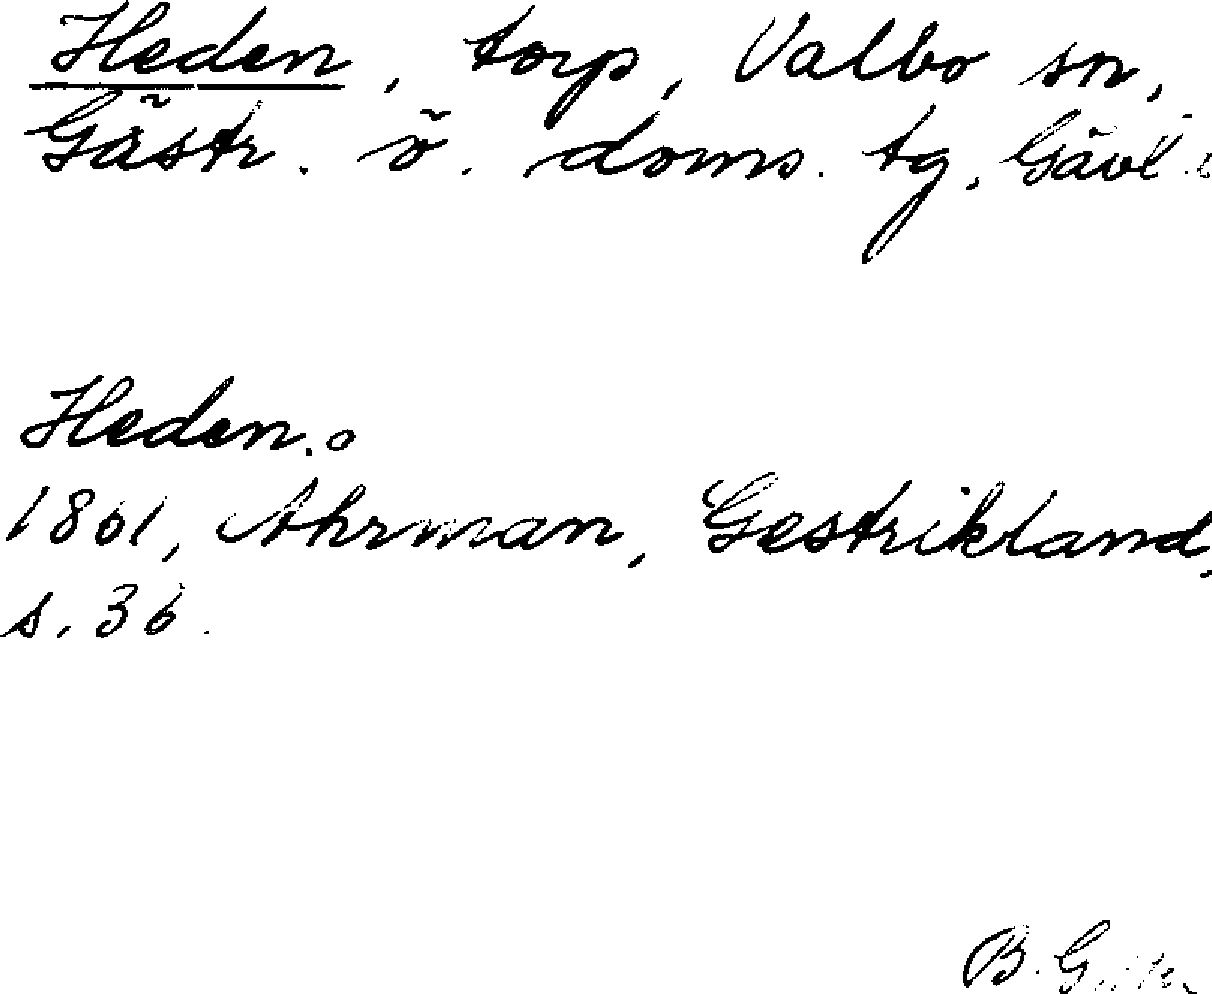 Heden, torp, Valbo sn,
Gästr. ö. doms. tg, Gävl.
Heden.
1861, Ahrman, Gestrikland,
s. 36.
B.